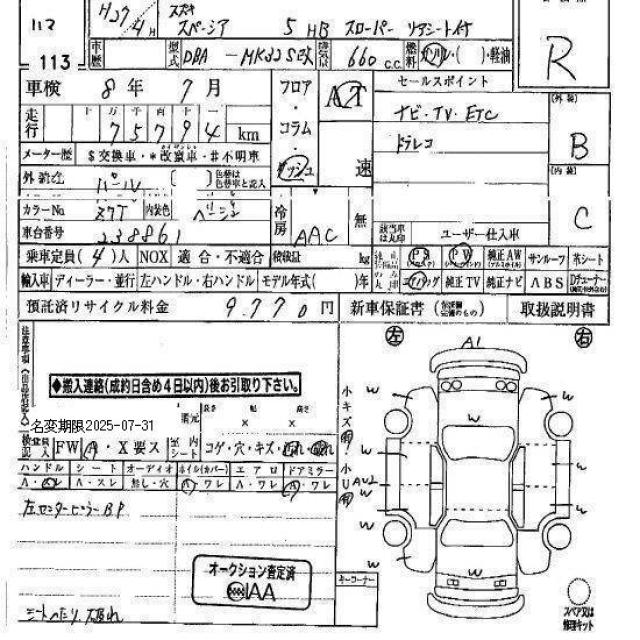 ハマ
113
H27/4H
スズキ
スペーシア 5 HB スローパー リアシート付
車歴
型式 DBA-MK32S改 排気量 660 c.c. 燃料 ガソリン・( )・軽油
R
車検 8年 7月
フロア・コラム・ダッシュ
AT
速
セールスポイント
走行 十万千百十一
75794 km
ナビ・TV・ETC
ドラレコ
(外装)
B
メーター歴 $交換車・*改竄車・#不明車
外装色 パール ( ) 色替は色替車と記入
(内装)
C
カラーNo. Z7T 内装色 ベージュ
冷房 AAC 無
該当車は丸印 ユーザー仕入車
車台番号 238861
乗車定員(4)人 NOX 適合・不適合 積載量 kg
PS PW 純正AW サンルーフ 革シート
輸入車 ディーラー・並行 左ハンドル・右ハンドル モデル年式( )年
エアバッグ 純正TV 純正ナビ ABS Dチューナー
預託済リサイクル料金 9,770円 新車保証書 取扱説明書
左 右
◆搬入連絡(成約日含め4日以内)後お引取り下さい。
名変期限2025-07-31
長さ 幅 高さ
x x
FW A・X要ス 室内シート コゲ・穴・キズ・汚れ・破れ
ハンドル シート オーディオ ホイル(カバー) エアロ ドアミラー
A・スレ A・スレ 無し・穴 A・ワレ A・ワレ A・ワレ
左センターピラーBP
オークション査定済
IAA
シートへたり、大汚れ
小キズ有!
小U有
A1
W
AU2
キーコーナー
スペア又は
修理キット